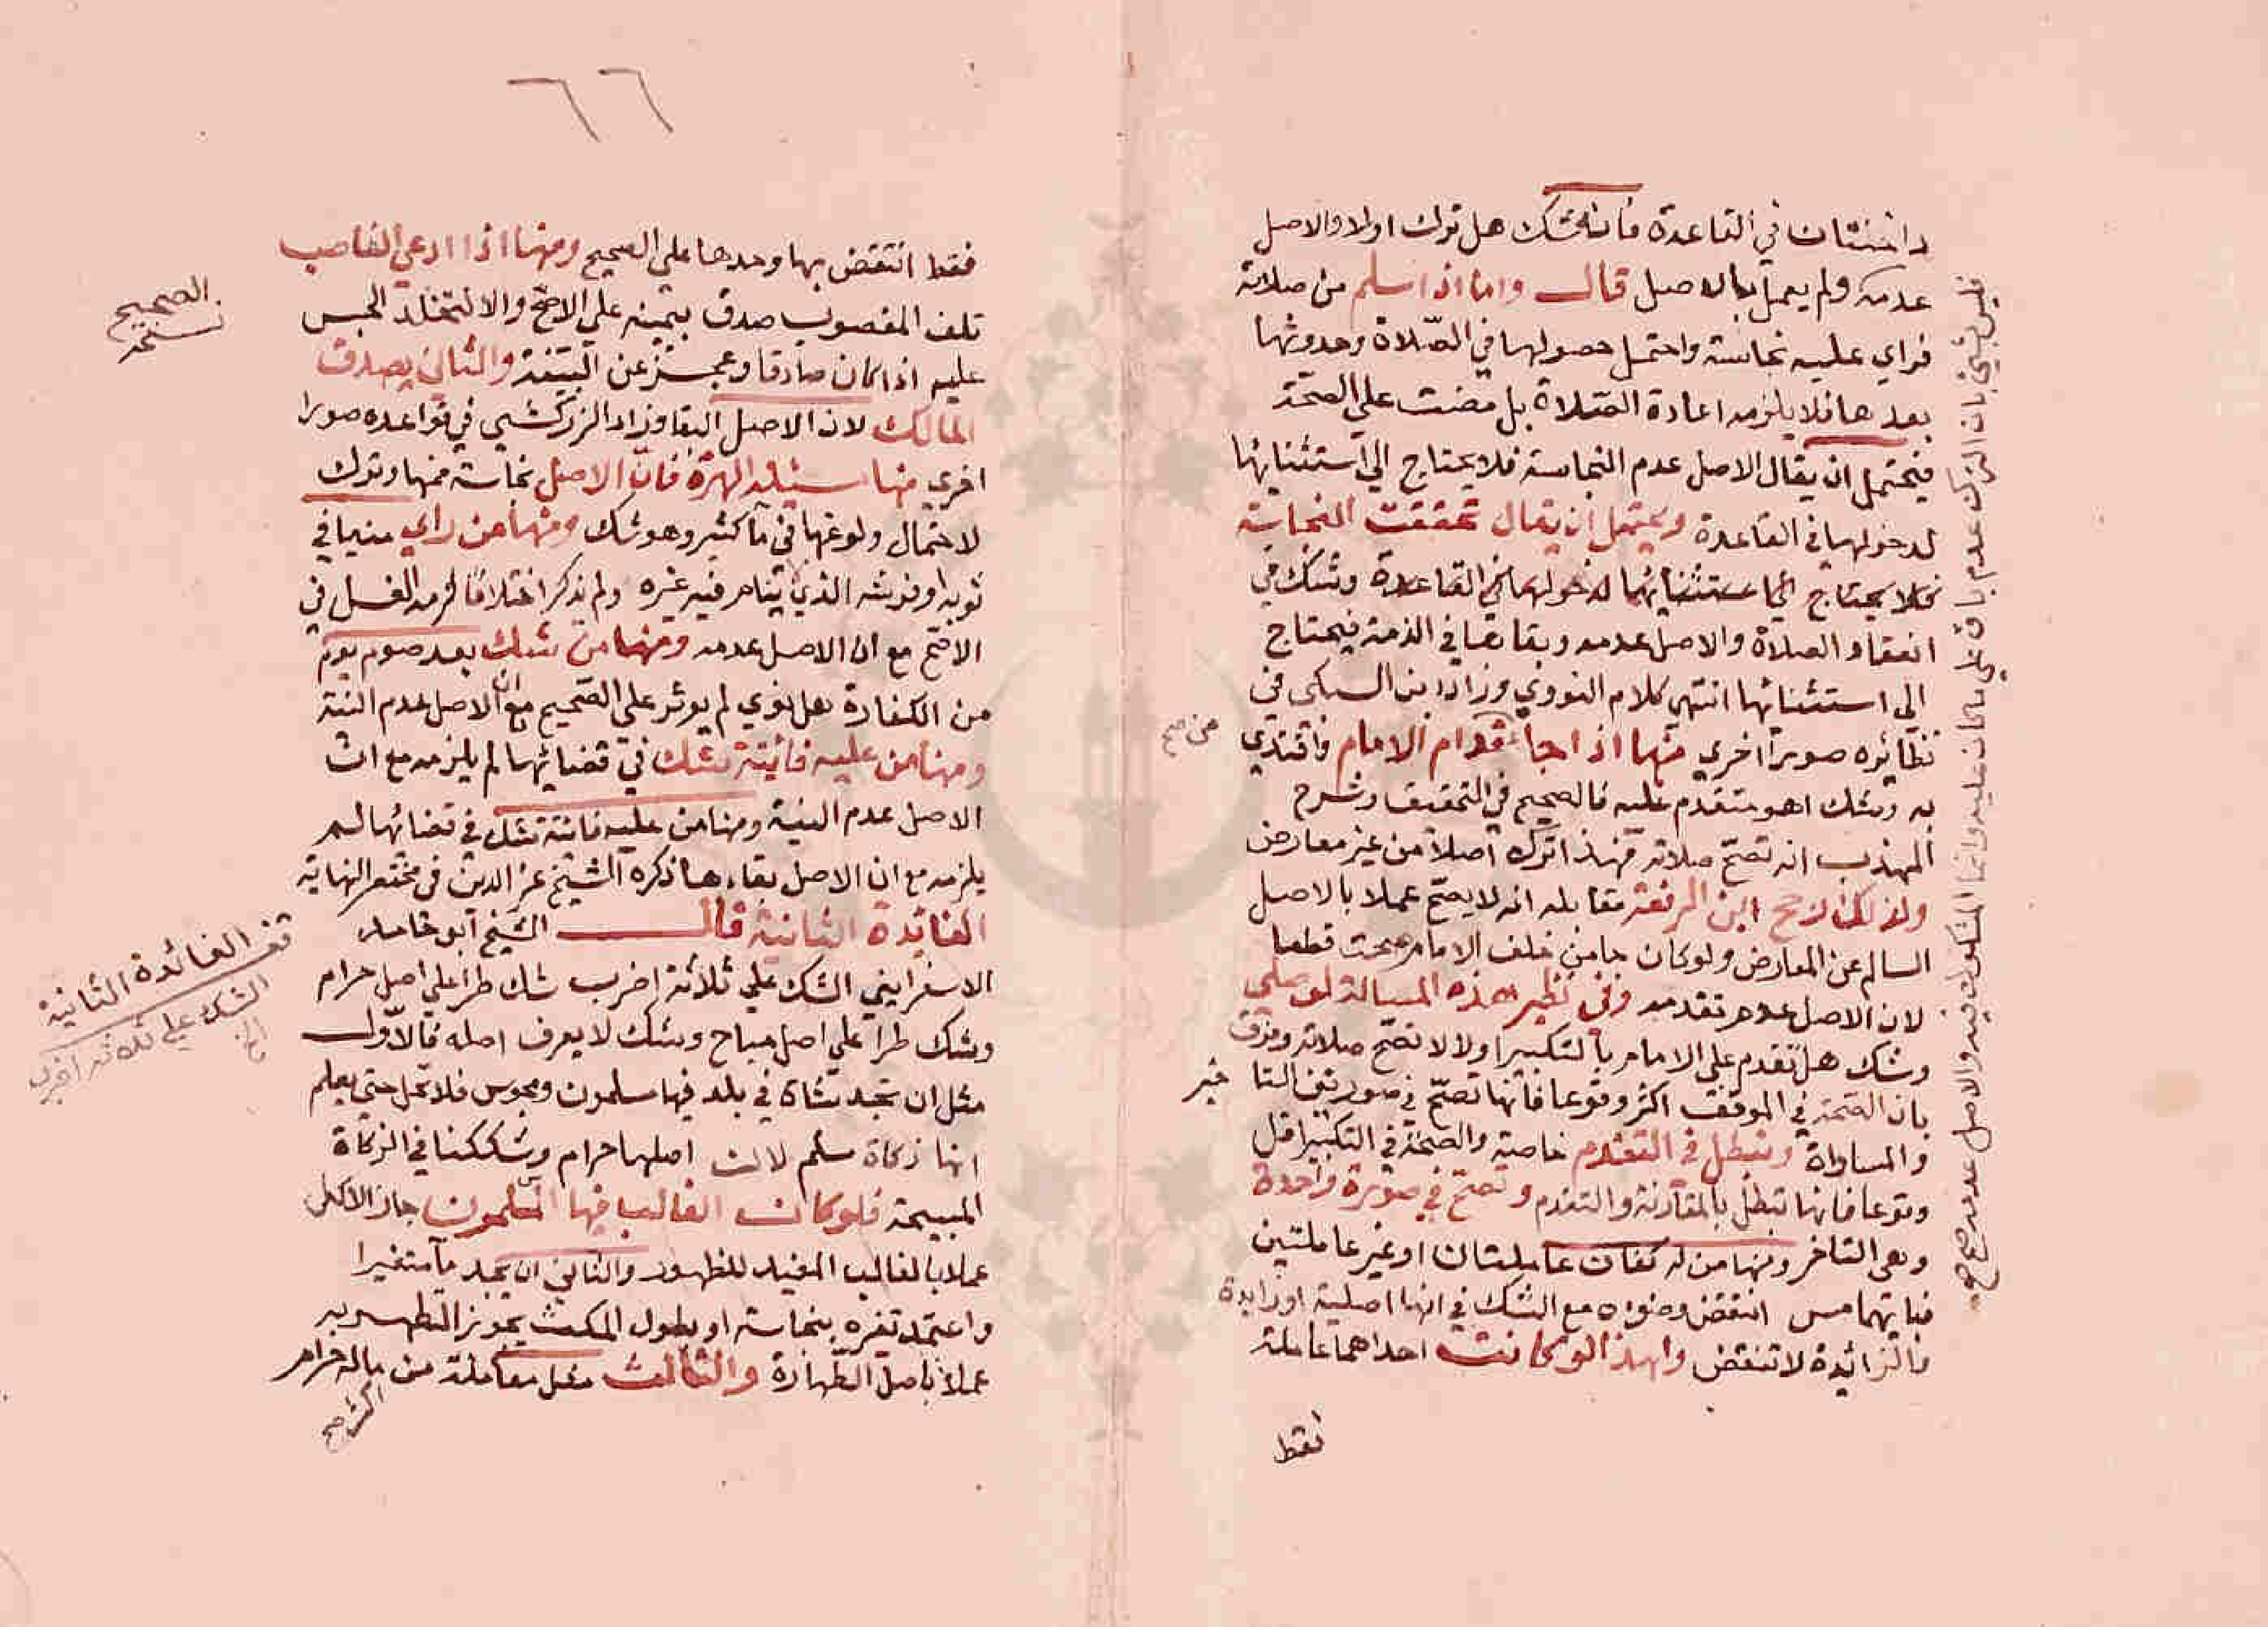 داخلتان في القاعدة فانه شك هل ترك اولا والاصل
عدمه ولم يعمل بالاصل قال واما اذا سلم من صلاته
فراي عليه نجاسة واحتمل حصولها في الصلاة وحدوثها
بعدها فلا يلزمه اعادة الصلاة بل مضت علي الصحة
فيحتمل ان يقال الاصل عدم النجاسة فلا يحتاج الي استثنايها
لدخولها في القاعدة ويحتمل ان يقال تحققت النجاسة
فلا يحتاج الي استثنائها لدخولها في القاعدة وشك في
انعقاد الصلاة والاصل عدمه وبقاءها في الذمة فيحتاج
الى استثنائها انتهي كلام النووي وزاد ابن السبكى في
نظائره صورا اخري منها اذا جا قدام الامام واقتدي
به وشك اهو متقدم عليه فالصحيح في التحقيق وشرح
المهذب انه تصح صلاته فهذا ترك اصلا من غير معارض
ولذلك رجح ابن الرفعة مقابله انه لا يصح عملا بالاصل
السالم عن المعارض ولو كان جا من خلف الامام صحت قطعا
لان الاصل عدم تقدمه وفي نظير هذه المسالة لو صلى
وشك هل تقدم علي الامام بالتكبير اولا لا تصح صلاته وفرق
بان الصحة في الموقف اكثر وقوعا فانها تصح في صورتين التا
خير
والمساواة وتبطل في التقدم خاصة والصحة في التكبير اقل
وقوعا فانها تبطل بالمقارنة والتقدم وتصح في صورة واحدة
وهى التاخر ومنها من له كفان عاملتان او غير عاملتين
فبايتهما مس انتقض وضوءه مع الشك في انها اصلية او زايدة
والزائدة لا تنقض ولهذا لو كانت احداهما عاملة
فقط
فقط انتقض بها وحدها علي الصحيح ومنها اذا ادعي الغاصب
تلف المغصوب صدق بيمينه علي الاصح والا لتخلد الحبس
عليه اذا كان صادقا وعجز عن البينة والثاني يصدق
المالك لان الاصل البقا وزاد الزركشي في قواعده صورا
اخري منها مسئلة الهرة فان الاصل نجاسة فمها وترك
لاحتمال ولوغها في ما كثير وهو شك ومنها من راي منيا في
ثوبه او فرشه الذي ينام فيه غيره ولم يذكر احتلاما لزمه الغسل في
الاصح مع ان الاصل عدمه ومنها من شك بعد صوم يوم
من الكفارة هل نوي لم يوثر علي الصحيح مع ان الاصل عدم النية
ومنها من عليه فائتة شك في قضائها لم يلزمه مع ان
الاصل عدم النية ومنها من عليه فائتة شك في قضائها لم
يلزمه مع ان الاصل بقاءها ذكره الشيخ عز الدين في مختصر النهاية
الفائدة الثانية قال الشيخ ابو حامد
الاسفرايني الشك علي ثلاثة اضرب شك طرا علي اصل حرام
وشك طرا علي اصل مباح وشك لا يعرف اصله فالاول
مثل ان تجد شاة في بلد فيها مسلمون ومجوس فلا تحل حتى يعلم
انها زكاة مسلم لان اصلها حرام وشككنا في الزكاة
المبيحة فلو كان الغالب فيها المسلمون جاز الاكل
عملا بالغالب المفيد للظهور والثاني ان تجد ما متغيرا
واحتمل تغيره بنجاسة او بطول المكث يجوز التطهير به
عملا باصل الطهارة والثالث مثل معاملة من ماله حرام
٦٦
الصحيح
نسخه
قف الفائدة الثانية
الشك علي ثلاثة اضرب
الخ